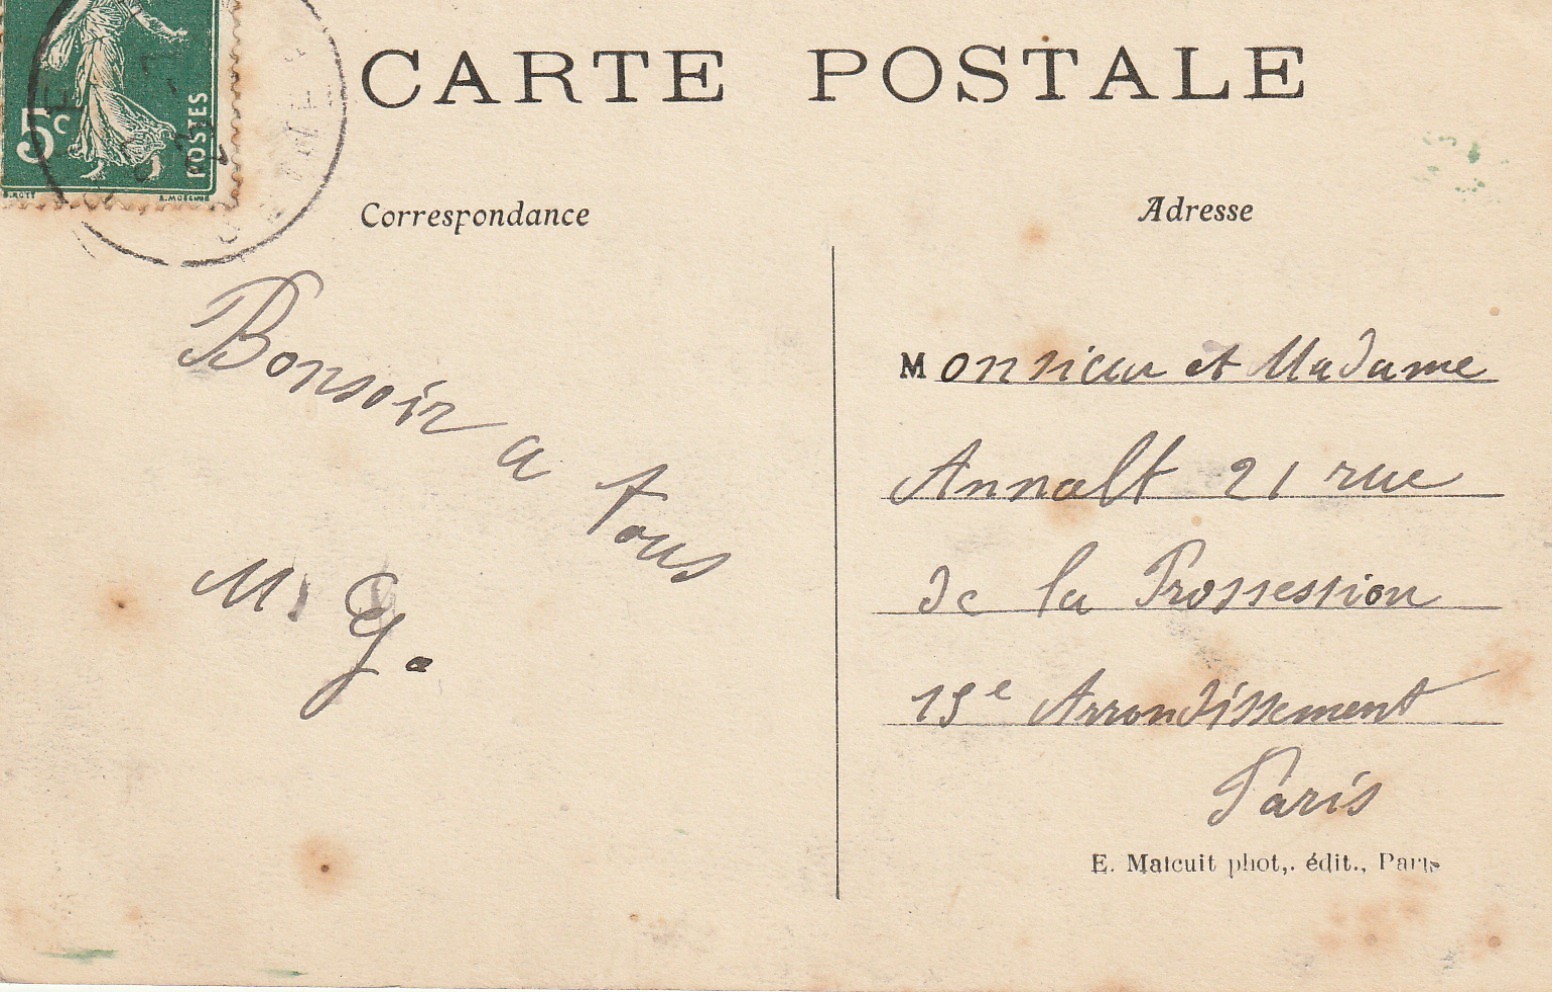 CARTE POSTALE
5c
POSTES
Correspondance
Adresse
Bonsoir a tous
M. G.
Monsieur et Madame
Annalt 21 rue
de la Prossession
15e Arrondissement
Paris
E. Malcuit phot,. édit., Paris